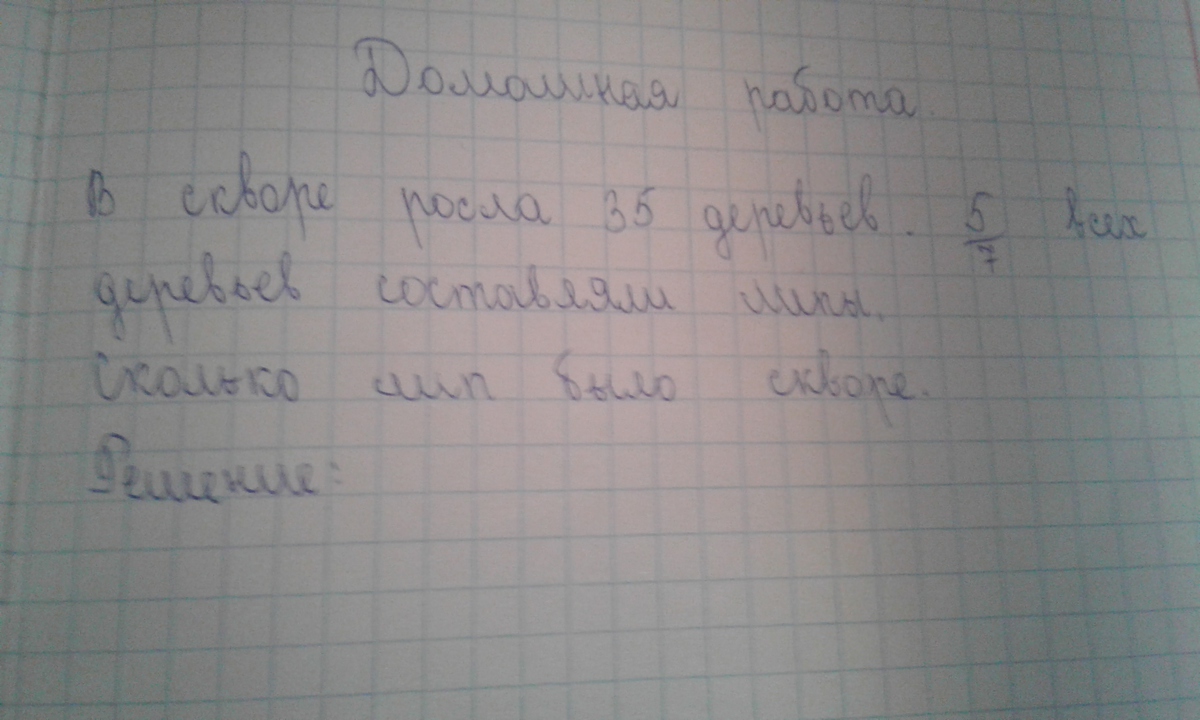 Домашная работа.
В скворе росла 35 деревьев. 5/7 всех
деревьев составляли липы.
Сколько лип было скворе.
Решение: